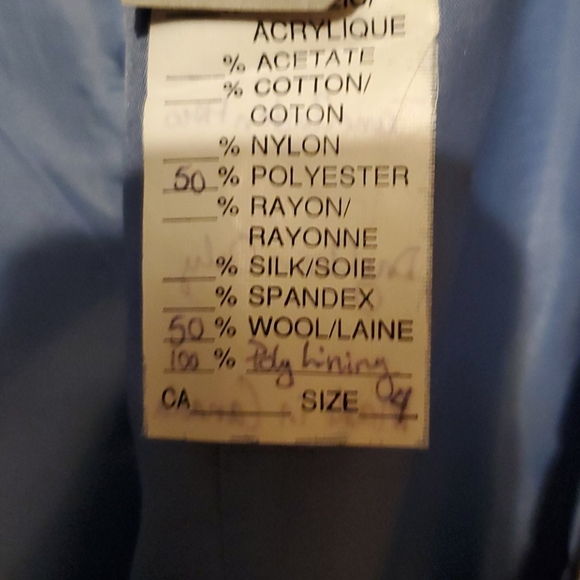 ACRYLIQUE
% ACETATE
% COTTON/
COTON
% NYLON
50 % POLYESTER
% RAYON/
RAYONNE
% SILK/SOIE
% SPANDEX
50 % WOOL/LAINE
100 % Poly Lining
CA SIZE 4